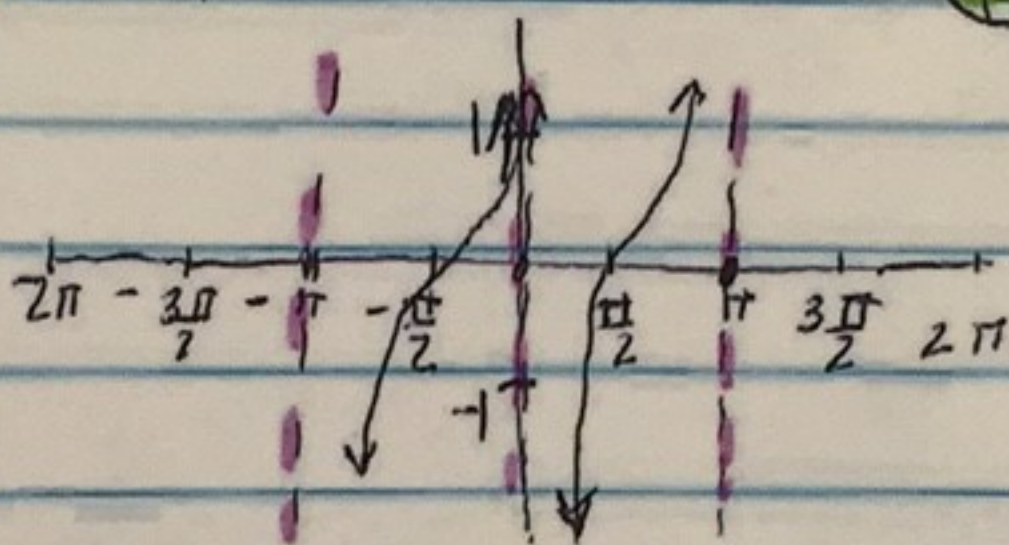 1
2π - 3π/2 - π - π/2 π/2 π 3π/2 2π
-1